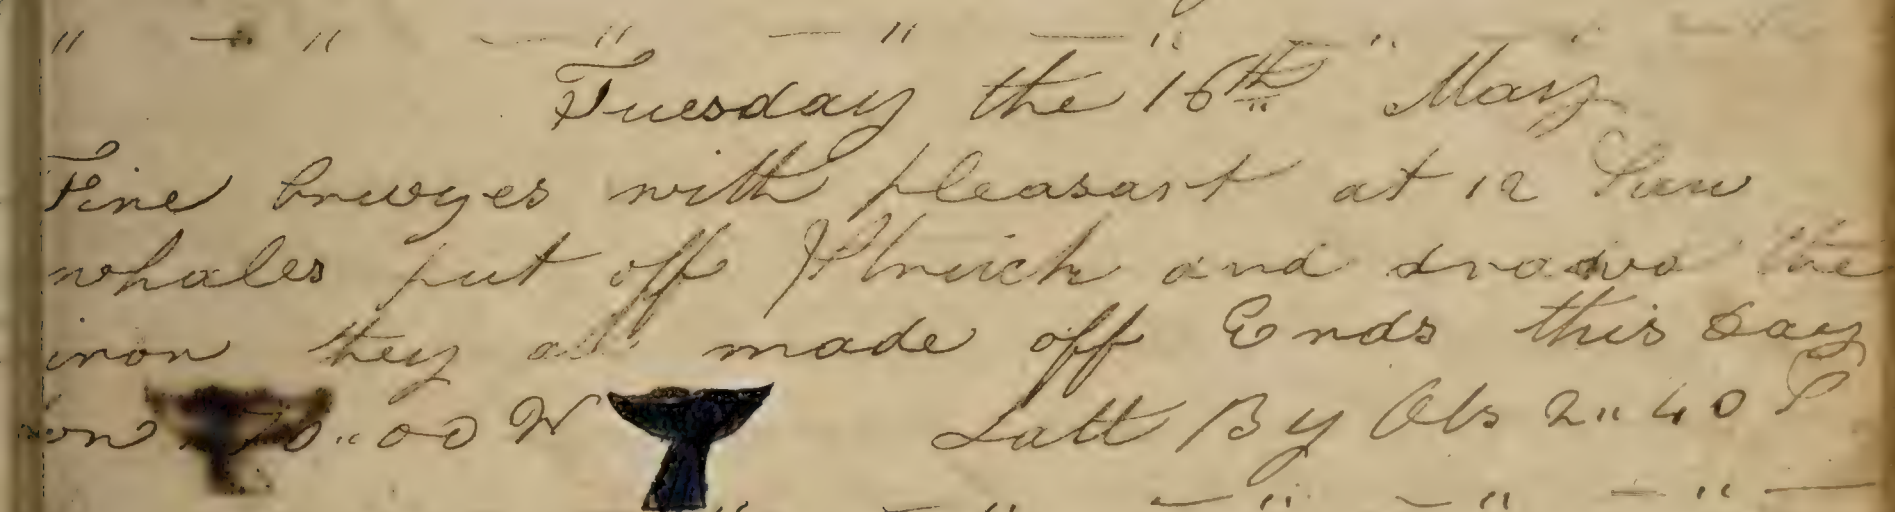 Tuesday the 16th May
Fine breezes with pleasant at 12 Saw
whales put off Struck and drawd the
iron they all made off Ends this day
on 00 W Latt By Obs 2" 40 S